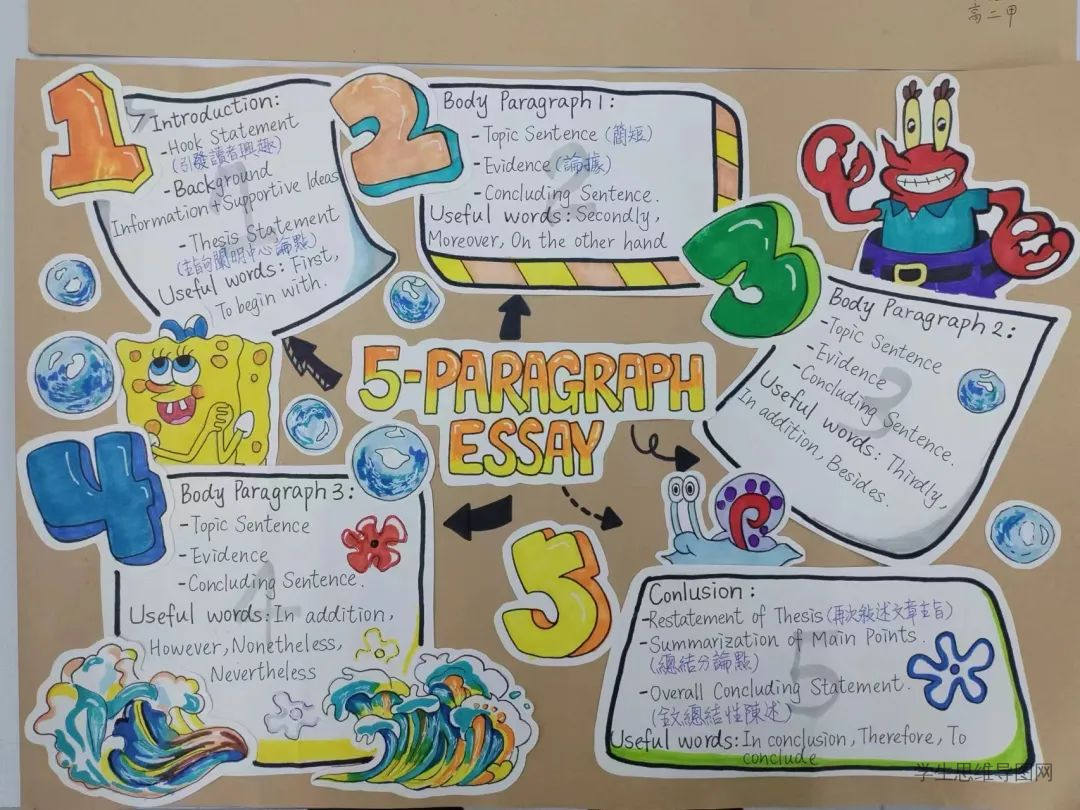 高二甲
1
Introduction:
-Hook Statement
(引發讀者興趣)
-Background
Information+Supportive Ideas
-Thesis Statement
(主旨句闡明中心論點)
Useful words: First,
To begin with.
1
2
Body Paragraph 1:
-Topic Sentence (簡短)
-Evidence (論據)
-Concluding Sentence.
Useful words: Secondly,
Moreover, On the other hand
2
3
Body Paragraph 2:
-Topic Sentence
-Evidence
-Concluding Sentence.
Useful words: Thirdly,
In addition, Besides.
3
5-PARAGRAPH
ESSAY
4
Body Paragraph 3:
-Topic Sentence
-Evidence
-Concluding Sentence.
Useful words: In addition,
However, Nonetheless,
Nevertheless
4
5
Conlusion:
-Restatement of Thesis (再次敘述文章主旨)
-Summarization of Main Points.
(總結分論點)
-Overall Concluding Statement.
(全文總結性陳述)
Useful words: In conclusion, Therefore, To
conclude
5
学生思维导图网